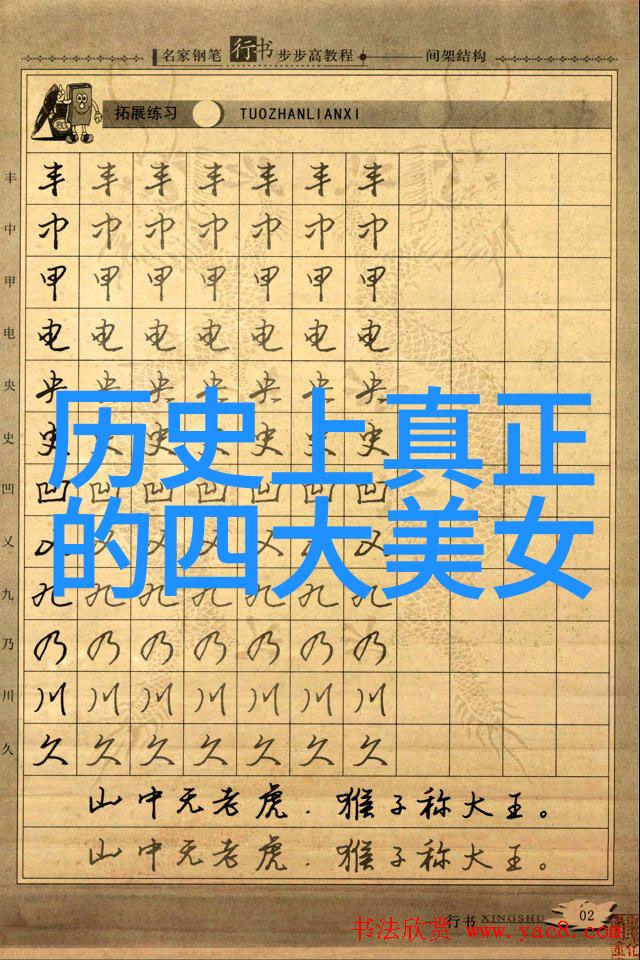 名家钢笔行书步步高教程 间架结构
拓展练习 TUOZHANLIANXI
丰 丰 丰 丰 丰 丰 丰 丰
中 中 中 中 中 中 中 中
甲 甲 甲 甲 甲 甲 甲 甲
电 电 电 电 电 电 电 电
央 央 央 央 央 央 央 央
历史上真正
史 史 史 史 史 史 史 史
凹 凹 凹 凹 凹 凹 凹 凹
的四大美女
乂 乂 乂 乂 乂 乂 乂 乂
九 九 九 九 九 九 九 九
乃 乃 乃 乃 乃 乃 乃 乃
川 川 川 川 川 川 川 川
久 久 久 久 久 久 久 久
山中无老虎．猴子称大王。
山中无老虎．猴子称大王。
行书 XINGSHU 02
书法欣赏 www.yac8.com